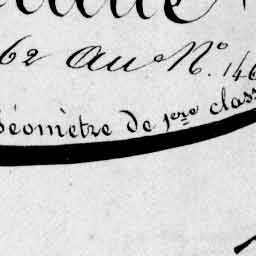 62 au N.° 146
Géomètre de 1ère class